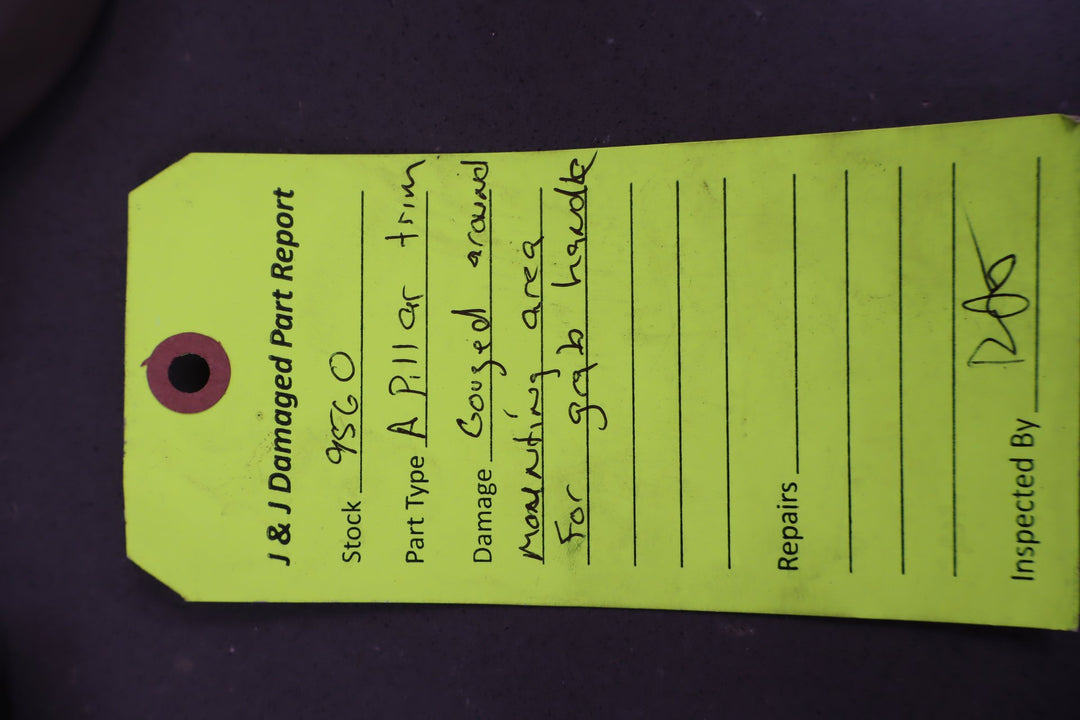 J & J Damaged Part Report
Stock 9560
Part Type A Pillar trim
Damage Gouged around
mounting area
For grab handle
Repairs
Inspected By